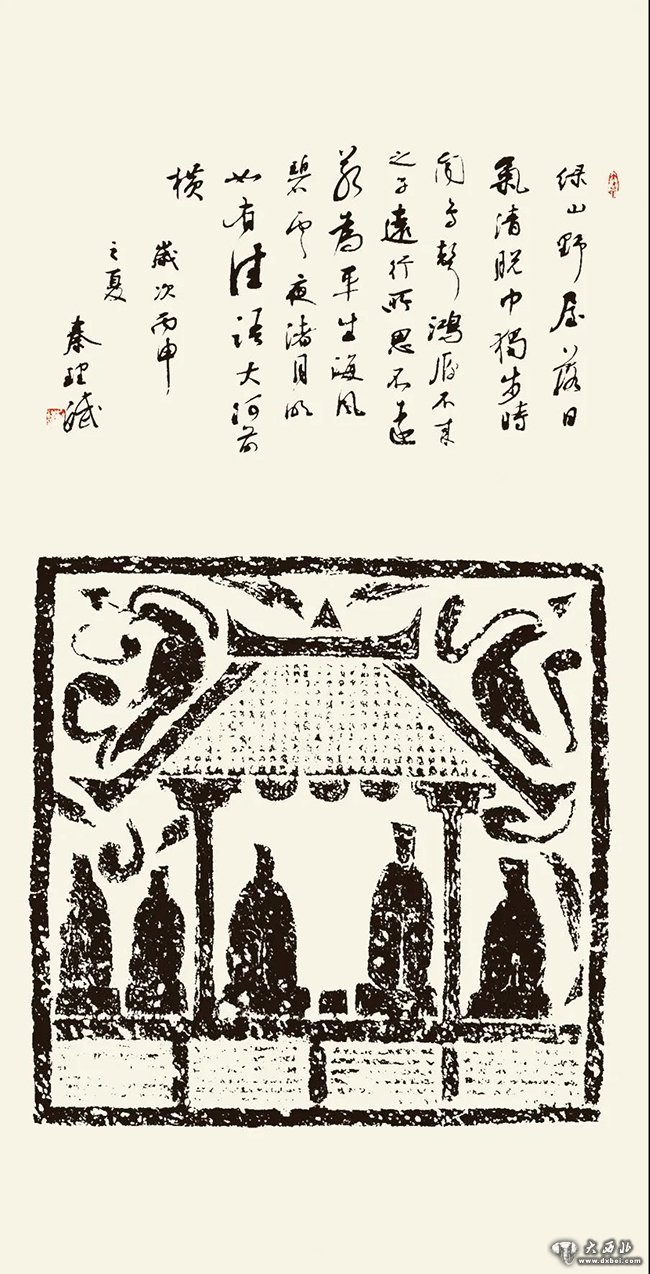 绿山野屋落日
氣清脱巾獨步時
闻鸟聲鴻雁不来
之子遠行所思不遠
若為平生海风
碧雲夜渚月明
如有佳语大河前
横
歲次丙申
之夏
秦理斌
大西北
www.dxbei.com